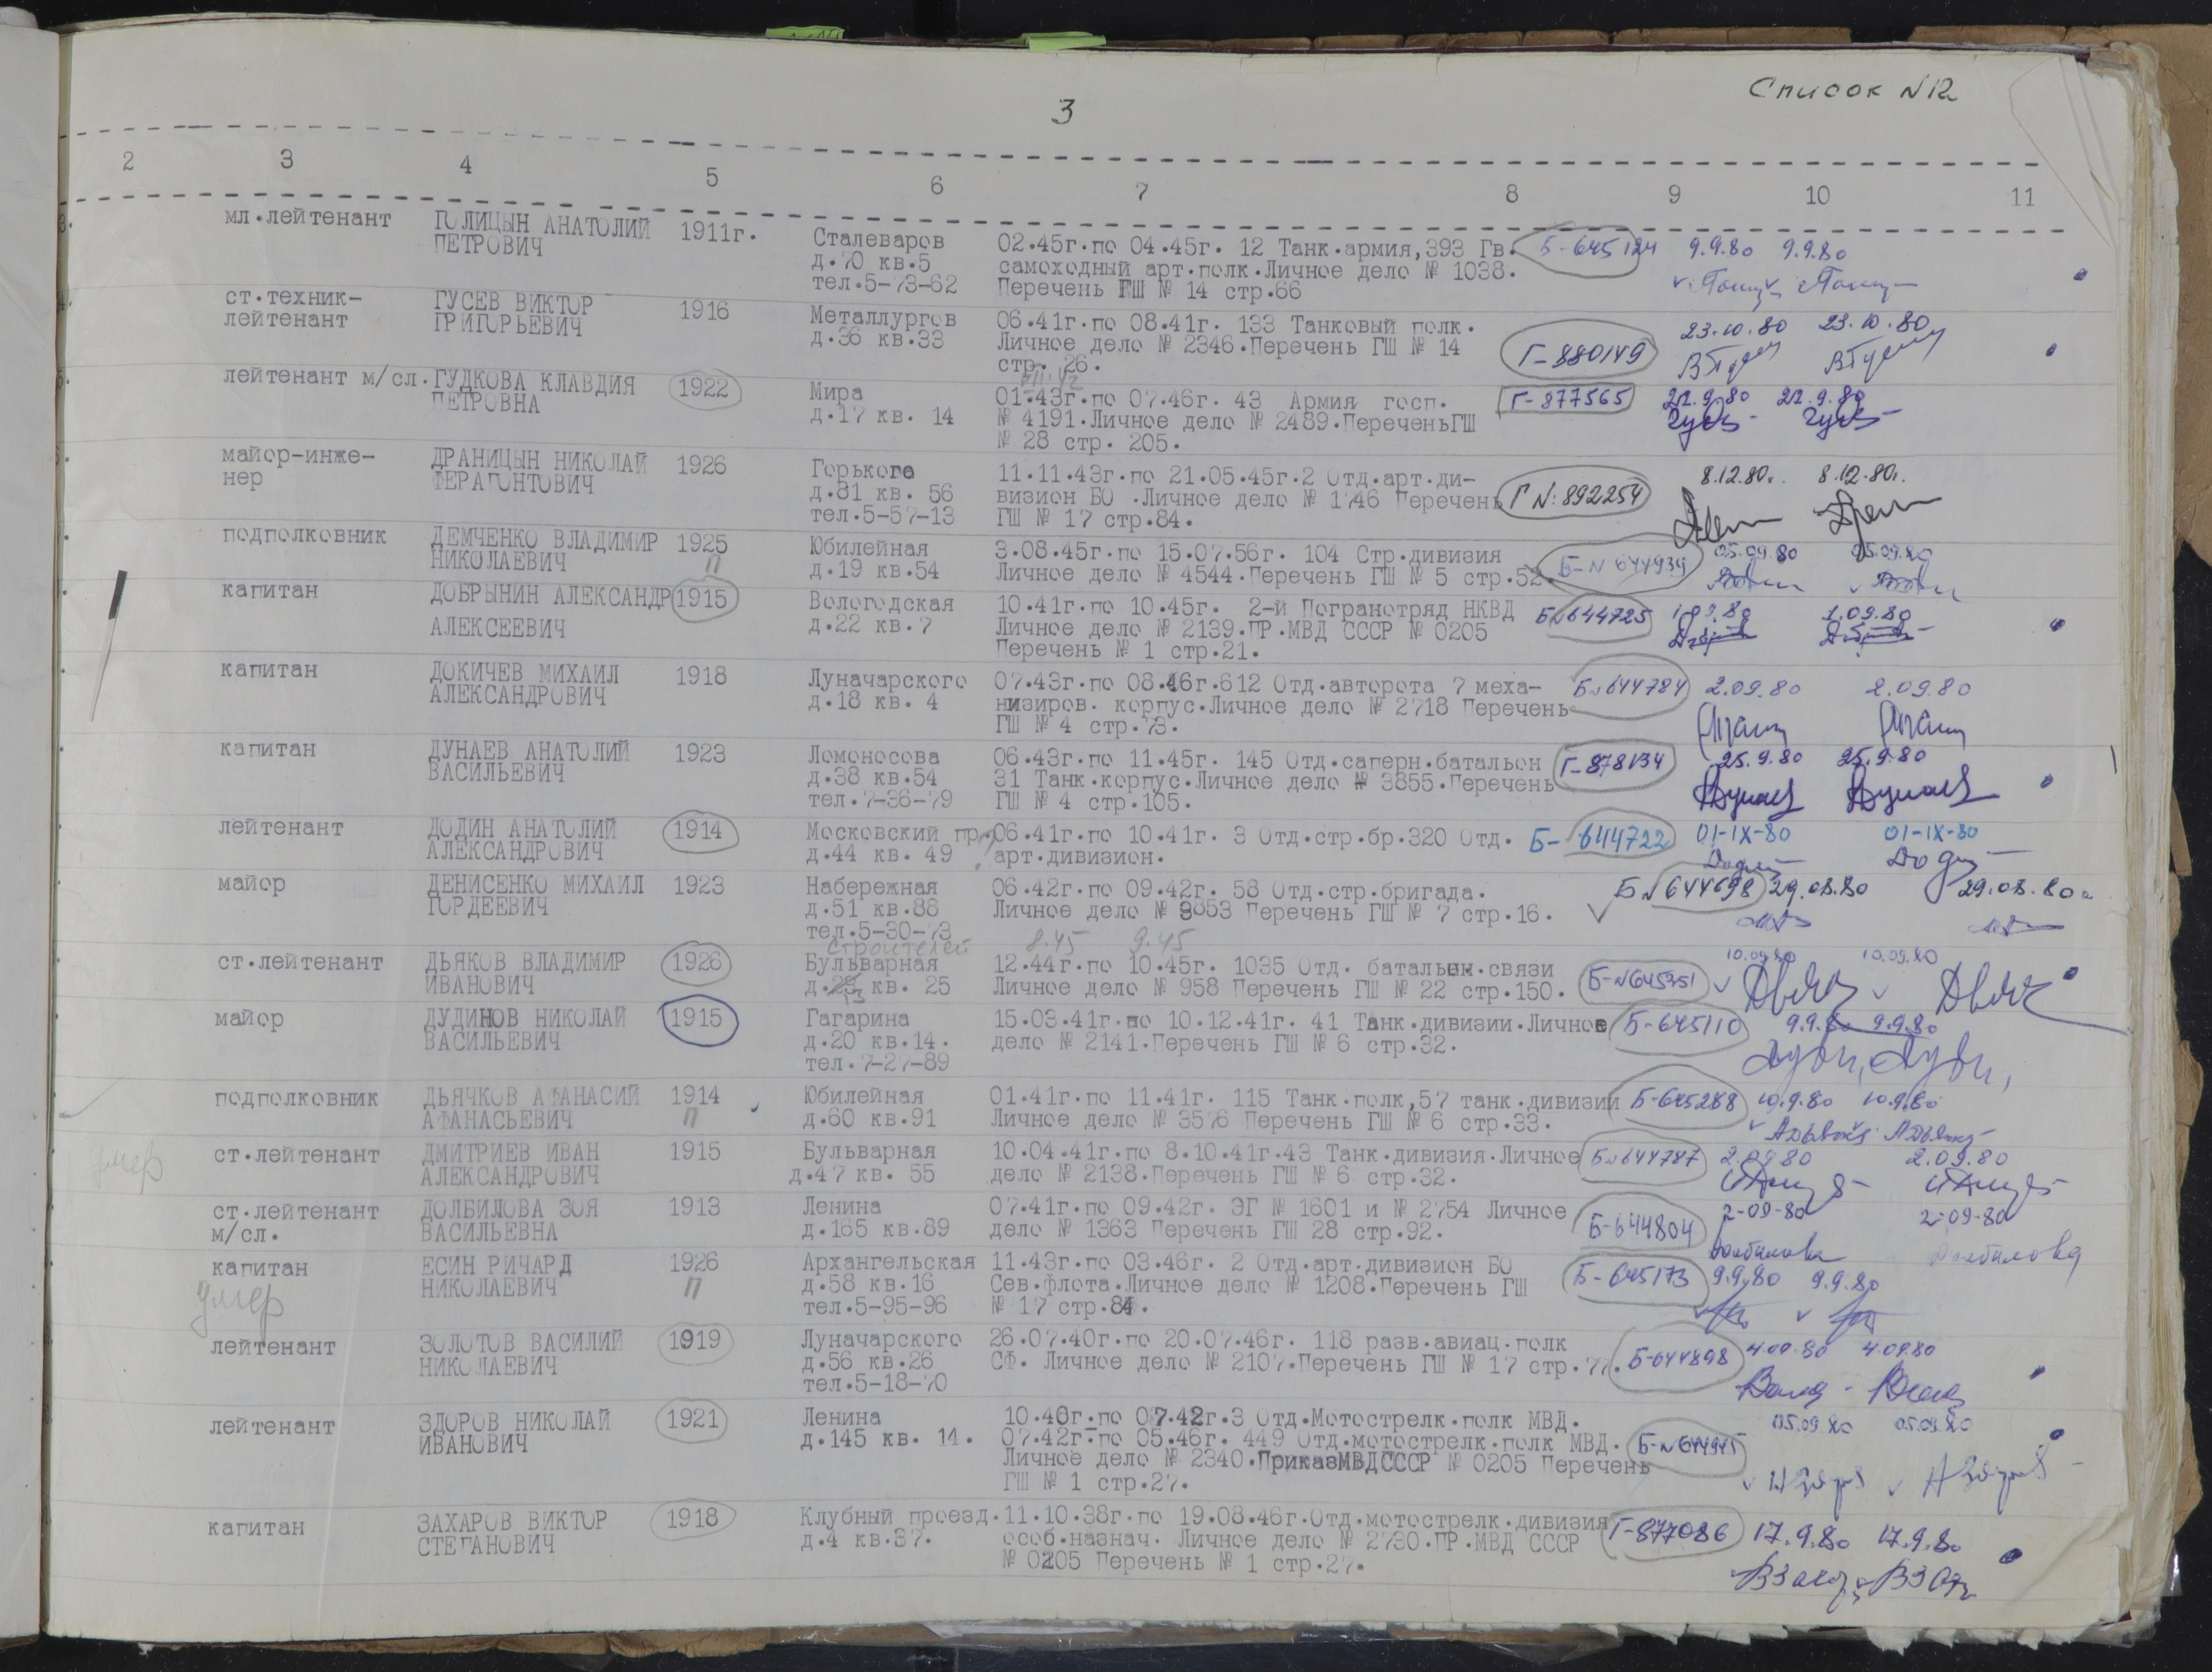 Список N 12
3
2 3 4 5 6 7 8 9 10 11
мл.лейтенант ГОЛИЦЫН АНАТОЛИЙ 1911г. Сталеваров 02.45г.по 04.45г. 12 Танк.армия,393 Гв. Б-645124 9.9.80 9.9.80
ПЕТРОВИЧ д.70 кв.5 самоходный арт.полк.Личное дело № 1038.
тел.5-73-62 Перечень ГШ № 14 стр.66
ст.техник- ГУСЕВ ВИКТОР 1916 Металлургов 06.41г.по 08.41г. 133 Танковый полк. 23.10.80 23.10.80
лейтенант ГРИГОРЬЕВИЧ д.36 кв.33 Личное дело № 2346.Перечень ГШ № 14 Г-880149
стр. 26.
лейтенант м/сл. ГУДКОВА КЛАВДИЯ 1922 Мира 01.43г.по 07.46г. 43 Армия госп. Г-877565 22.9.80 22.9.80
ПЕТРОВНА д.17 кв. 14 № 4191.Личное дело № 2489.ПереченьГШ
№ 28 стр. 205.
майор-инже- ДРАНИЦЫН НИКОЛАЙ 1926 Горького 11.11.43г.по 21.05.45г.2 Отд.арт.ди- 8.12.80г. 8.12.80г.
нер ФЕРАПОНТОВИЧ д.81 кв. 56 визион БО .Личное дело № 1746 Перечень Г N: 892254
тел.5-57-13 ГШ № 17 стр.84.
подполковник ДЕМЧЕНКО ВЛАДИМИР 1925 Юбилейная 3.08.45г.по 15.07.56г. 104 Стр.дивизия Б-N 644939 05.09.80 05.09.80
НИКОЛАЕВИЧ П д.19 кв.54 Личное дело № 4544.Перечень ГШ № 5 стр.52.
капитан ДОБРЫНИН АЛЕКСАНДР 1915 Вологодская 10.41г.по 10.45г. 2-й Погранотряд НКВД БN644725 1.09.80 1.09.80
АЛЕКСЕЕВИЧ д.22 кв.7 Личное дело № 2139.ПР.МВД СССР № 0205
Перечень № 1 стр.21.
капитан ДОКИЧЕВ МИХАИЛ 1918 Луначарского 07.43г.по 08.46г.612 Отд.авторота 7 меха- БN644784 2.09.80 2.09.80
АЛЕКСАНДРОВИЧ д.18 кв. 4 низиров. корпус.Личное дело № 2718 Перечень
ГШ № 4 стр.73.
капитан ДУНАЕВ АНАТОЛИЙ 1923 Ломоносова 06.43г.по 11.45г. 145 Отд.саперн.батальон Г-878134 25.9.80 25.9.80
ВАСИЛЬЕВИЧ д.38 кв.54 31 Танк.корпус.Личное дело № 3855.Перечень Дунаев Дунаев
тел.7-36-79 ГШ № 4 стр.105.
лейтенант ДОДИН АНАТОЛИЙ 1914 Московский пр. 06.41г.по 10.41г. 3 Отд.стр.бр.320 Отд. Б-644722 01-IX-80 01-IX-80
АЛЕКСАНДРОВИЧ д.44 кв. 49 арт.дивизион.
майор ДЕНИСЕНКО МИХАИЛ 1923 Набережная 06.42г.по 09.42г. 58 Отд.стр.бригада. БN644698 29.08.80 29.08.80г
ГОРДЕЕВИЧ д.51 кв.88 Личное дело № 9853 Перечень ГШ № 7 стр.16.
тел.5-30-73
строителей 8.45 9.45
ст.лейтенант ДЬЯКОВ ВЛАДИМИР 1926 Бульварная 12.44г.по 10.45г. 1035 Отд. батальон.связи Б-N645351 10.09.80 10.09.80
ИВАНОВИЧ д. 13 кв. 25 Личное дело № 958 Перечень ГШ № 22 стр.150.
майор ДУДИНОВ НИКОЛАЙ 1915 Гагарина 15.03.41г.по 10.12.41г. 41 Танк.дивизии.Личное Б-645110 9.9.80 9.9.80
ВАСИЛЬЕВИЧ д.20 кв.14. дело № 2141.Перечень ГШ № 6 стр.32.
тел.7-27-89
подполковник ДЬЯЧКОВ АФАНАСИЙ 1914 Юбилейная 01.41г.по 11.41г. 115 Танк.полк,57 танк.дивизии Б-645288 10.9.80 10.9.80
АФАНАСЬЕВИЧ П д.60 кв.91 Личное дело № 3576 Перечень ГШ № 6 стр.33.
умер ст.лейтенант ДМИТРИЕВ ИВАН 1915 Бульварная 10.04.41г.по 8.10.41г.43 Танк.дивизия.Личное БN644787 2.09.80 2.09.80
АЛЕКСАНДРОВИЧ д.47 кв. 55 дело № 2138.Перечень ГШ № 6 стр.32.
ст.лейтенант ДОЛБИЛОВА ЗОЯ 1913 Ленина 07.41г.по 09.42г. ЭГ № 1601 и № 2754 Личное Б-644804 2-09-80 2-09-80
м/сл. ВАСИЛЬЕВНА д.165 кв.89 дело № 1363 Перечень ГШ 28 стр.92. Долбилова Долбилова
капитан ЕСИН РИЧАРД 1926 Архангельская 11.43г.по 03.46г. 2 Отд.арт.дивизион БО Б-645173 9.9.80 9.9.80
умер НИКОЛАЕВИЧ П д.58 кв.16 Сев.флота.Личное дело № 1208.Перечень ГШ
тел.5-95-96 № 17 стр.84.
лейтенант ЗОЛОТОВ ВАСИЛИЙ 1919 Луначарского 26.07.40г.по 20.07.46г. 118 разв.авиац.полк Б-644898 4.09.80 4.09.80
НИКОЛАЕВИЧ д.56 кв.26 СФ. Личное дело № 2107.Перечень ГШ № 17 стр.77.
тел.5-18-70
лейтенант ЗДОРОВ НИКОЛАЙ 1921 Ленина 10.40г.по 07.42г.3 Отд.Мотострелк.полк МВД. 05.09.80 05.09.80
ИВАНОВИЧ д.145 кв. 14. 07.42г.по 05.46г. 449 Отд.мотострелк.полк МВД. Б-N644945
Личное дело № 2340.ПриказМВДСССР № 0205 Перечень
ГШ № 1 стр.27.
капитан ЗАХАРОВ ВИКТОР 1918 Клубный проезд. 11.10.38г.по 19.08.46г.Отд.мотострелк.дивизия Г-877086 17.9.80 17.9.80
СТЕПАНОВИЧ д.4 кв.37. особ.назнач. Личное дело № 2730.ПР.МВД СССР
№ 0205 Перечень № 1 стр.27.